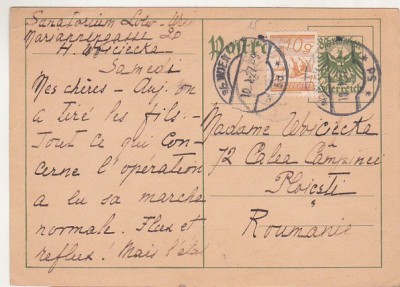 Sanatorium Löw - Wien
Mariannengasse 20
H. Wojciecka
Samedi
Mes chères - Auj. on
a tiré les fils :-
Tout ce qui con-
cerne l'opération
a eu sa marche
normale. Flux et
reflux! Mais l'éta
Postka
10g
Österreich
WIEN
Madame Wojciecka
72 Calea Câmpinei
Ploiești
Roumanie